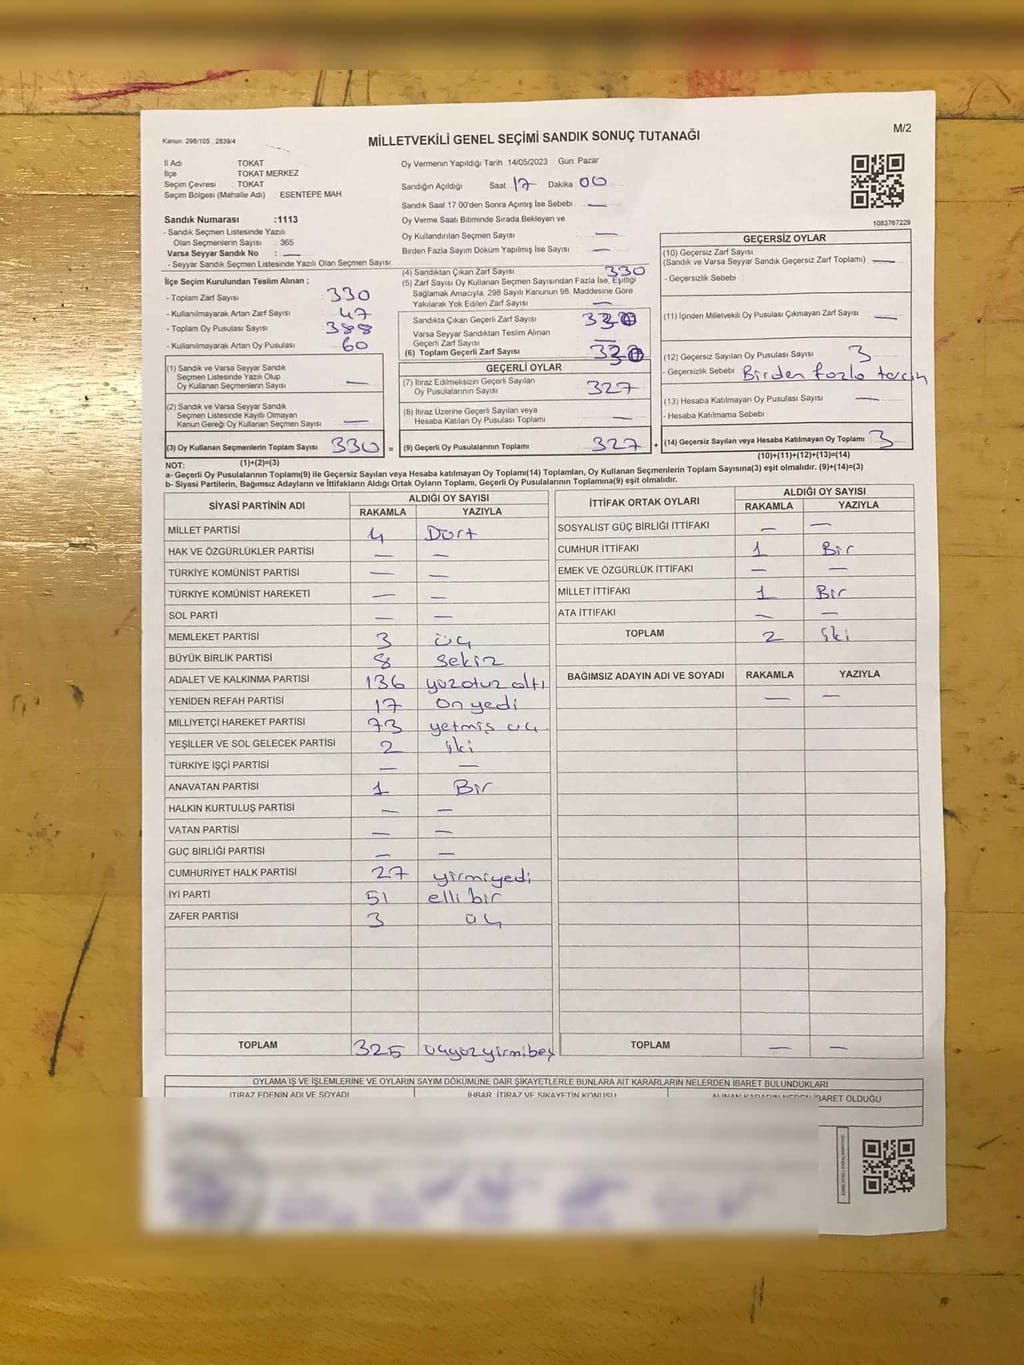 M/2
Kanun: 298/105 ; 2839/4
MİLLETVEKİLİ GENEL SEÇİMİ SANDIK SONUÇ TUTANAĞI
İl Adı : TOKAT
İlçe : TOKAT MERKEZ
Seçim Çevresi : TOKAT
Seçim Bölgesi (Mahalle Adı) : ESENTEPE MAH.
Oy Vermenin Yapıldığı Tarih 14/05/2023 Gün: Pazar
Sandığın Açıldığı Saat 17 Dakika 00
Sandık Saat 17 00'den Sonra Açımış İse Sebebi —
Oy Verme Saati Bitiminde Sırada Bekleyen ve
Oy Kullandırılan Seçmen Sayısı —
Birden Fazla Sayım Döküm Yapılmış İse Sayısı —
1083767229
Sandık Numarası :1113
- Sandık Seçmen Listesinde Yazılı
Olan Seçmenlerin Sayısı : 365
Varsa Seyyar Sandık No : —
- Seyyar Sandık Seçmen Listesinde Yazılı Olan Seçmen Sayısı
İlçe Seçim Kurulundan Teslim Alınan ;
- Toplam Zarf Sayısı : 330
- Kullanılmayarak Artan Zarf Sayısı : 47
- Toplam Oy Pusulası Sayısı : 388
- Kullanılmayarak Artan Oy Pusulası : 60
(1) Sandık ve Varsa Seyyar Sandık
Seçmen Listesinde Yazılı Olup
Oy Kullanan Seçmenlerin Sayısı —
(2) Sandık ve Varsa Seyyar Sandık
Seçmen Listesinde Kayıtlı Olmayan
Kanun Gereği Oy Kullanan Seçmen Sayısı —
(3) Oy Kullanan Seçmenlerin Toplam Sayısı 330 =
(1)+(2)=(3)
(4) Sandıktan Çıkan Zarf Sayısı 330
(5) Zarf Sayısı Oy Kullanan Seçmen Sayısından Fazla İse, Eşitliği
Sağlamak Amacıyla, 298 Sayılı Kanunun 98. Maddesine Göre
Yakılarak Yok Edilen Zarf Sayısı —
Sandıkta Çıkan Geçerli Zarf Sayısı 330
Varsa Seyyar Sandıktan Teslim Alınan
Geçerli Zarf Sayısı —
(6) Toplam Geçerli Zarf Sayısı 330
GEÇERLİ OYLAR
(7) İtiraz Edilmeksizin Geçerli Sayılan
Oy Pusulalarının Sayısı 327
(8) İtiraz Üzerine Geçerli Sayılan veya
Hesaba Katılan Oy Pusulası Toplamı —
(9) Geçerli Oy Pusulalarının Toplamı 327 +
GEÇERSİZ OYLAR
(10) Geçersiz Zarf Sayısı
(Sandık ve Varsa Seyyar Sandık Geçersiz Zarf Toplamı) —
- Geçersizlik Sebebi
(11) İçinden Milletvekili Oy Pusulası Çıkmayan Zarf Sayısı —
(12) Geçersiz Sayılan Oy Pusulası Sayısı 3
- Geçersizlik Sebebi Birden fazla tercih
(13) Hesaba Katılmayan Oy Pusulası Sayısı —
- Hesaba Katılmama Sebebi
(14) Geçersiz Sayılan veya Hesaba Katılmayan Oy Toplamı 3
(10)+(11)+(12)+(13)=(14)
NOT:
a- Geçerli Oy Pusulalarının Toplamı(9) ile Geçersiz Sayılan veya Hesaba katılmayan Oy Toplamı(14) Toplamları, Oy Kullanan Seçmenlerin Toplam Sayısına(3) eşit olmalıdır. (9)+(14)=(3)
b- Siyasi Partilerin, Bağımsız Adayların ve İttifakların Aldığı Ortak Oyların Toplamı, Geçerli Oy Pusulalarının Toplamına(9) eşit olmalıdır.
SİYASİ PARTİNİN ADI ALDIĞI OY SAYISI
RAKAMLA YAZIYLA
MİLLET PARTİSİ 4 Dört
HAK VE ÖZGÜRLÜKLER PARTİSİ — —
TÜRKİYE KOMÜNİST PARTİSİ — —
TÜRKİYE KOMÜNİST HAREKETİ — —
SOL PARTİ — —
MEMLEKET PARTİSİ 3 üç
BÜYÜK BİRLİK PARTİSİ 8 sekiz
ADALET VE KALKINMA PARTİSİ 136 yüzotuz altı
YENİDEN REFAH PARTİSİ 17 on yedi
MİLLİYETÇİ HAREKET PARTİSİ 73 yetmiş üç
YEŞİLLER VE SOL GELECEK PARTİSİ 2 iki
TÜRKİYE İŞÇİ PARTİSİ — —
ANAVATAN PARTİSİ 1 Bir
HALKIN KURTULUŞ PARTİSİ — —
VATAN PARTİSİ — —
GÜÇ BİRLİĞİ PARTİSİ — —
CUMHURİYET HALK PARTİSİ 27 yirmiyedi
İYİ PARTİ 51 elli bir
ZAFER PARTİSİ 3 üç
TOPLAM 325 üçyüzyirmibeş
İTTİFAK ORTAK OYLARI ALDIĞI OY SAYISI
RAKAMLA YAZIYLA
SOSYALİST GÜÇ BİRLİĞİ İTTİFAKI — —
CUMHUR İTTİFAKI 1 Bir
EMEK VE ÖZGÜRLÜK İTTİFAKI — —
MİLLET İTTİFAKI 1 Bir
ATA İTTİFAKI — —
TOPLAM 2 iki
BAĞIMSIZ ADAYIN ADI VE SOYADI RAKAMLA YAZIYLA
— —
TOPLAM — —
OYLAMA İŞ VE İŞLEMLERİNE VE OYLARIN SAYIM DÖKÜMÜNE DAİR ŞİKAYETLERLE BUNLARA AİT KARARLARIN NELERDEN İBARET BULUNDUKLARI
İTİRAZ EDENİN ADI VE SOYADI İHBAR, İTİRAZ VE ŞİKAYETİN KONUSU ALINAN KARARIN NEDEN İBARET OLDUĞU